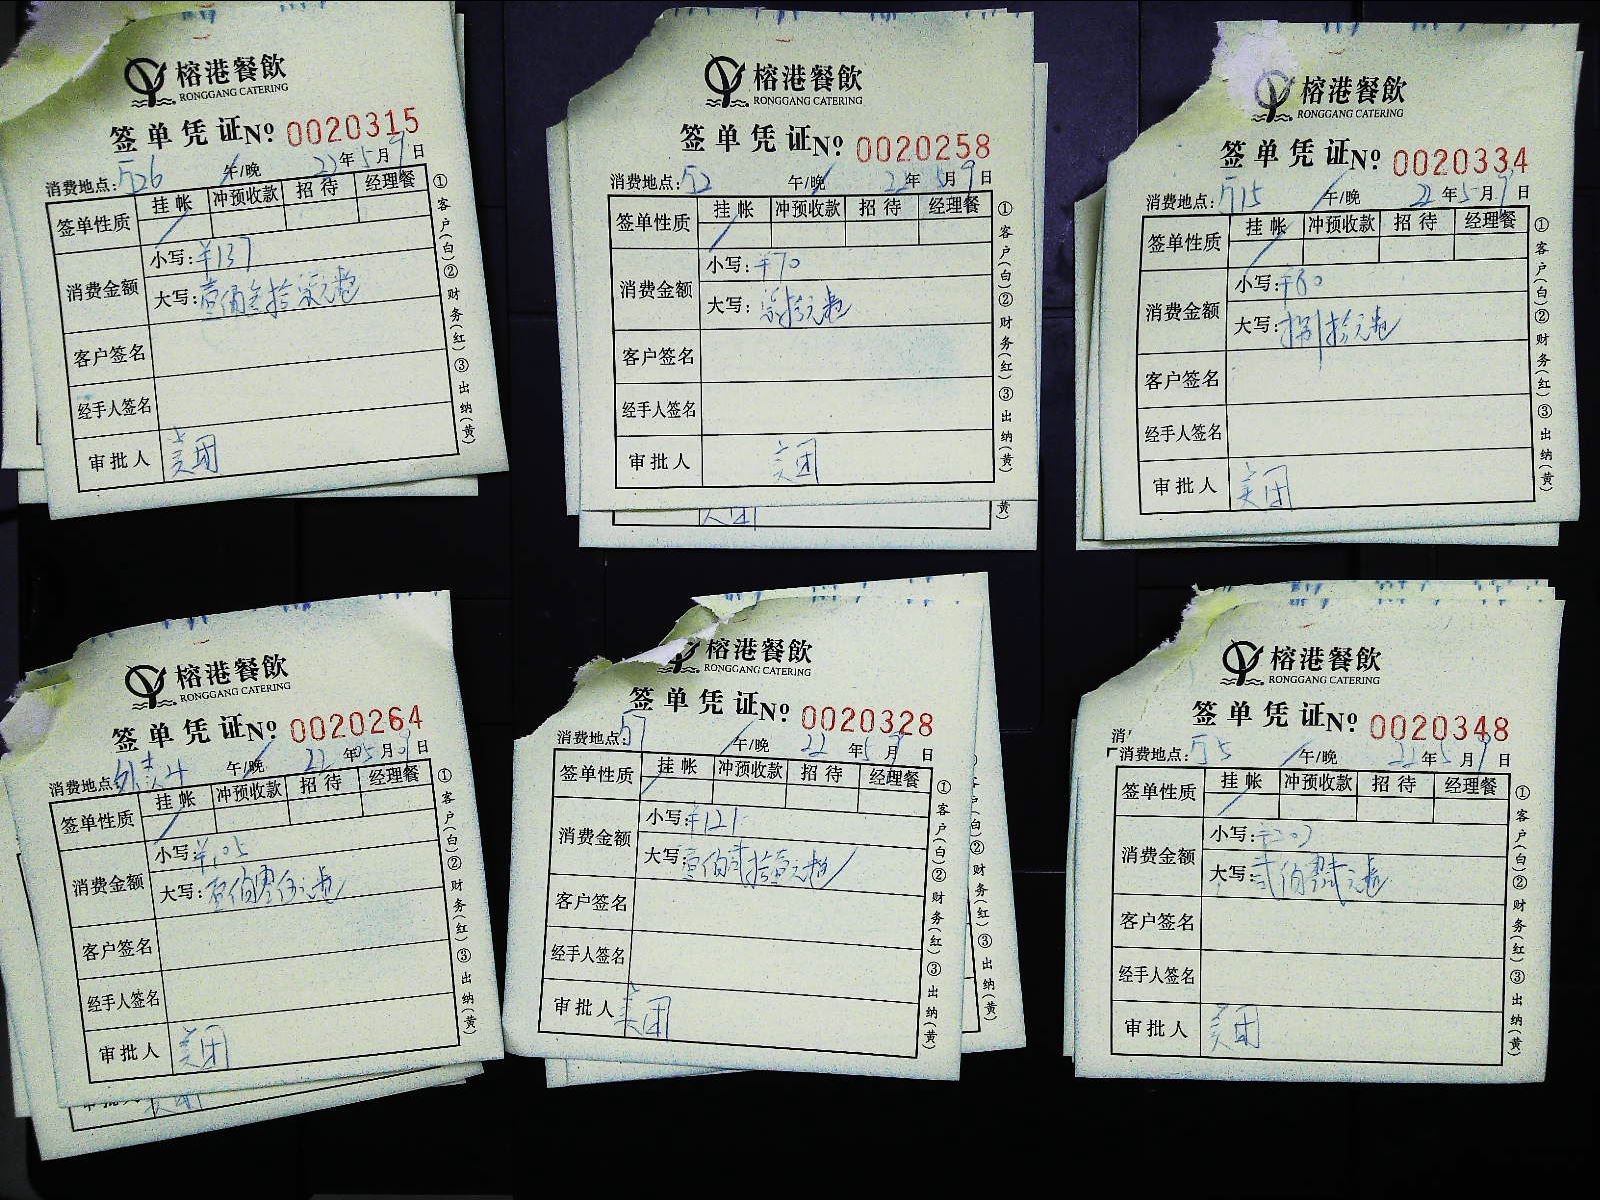 榕港餐飲
RONGGANG CATERING
签单凭证 № 0020315
消费地点: 午/晚 22年5月9日
签单性质 挂帐 冲预收款 招待 经理餐
消费金额 小写: ¥137
大写: 壹佰叁拾柒元整
客户签名
经手人签名
审批人 美团
①客户(白)②财务(红)③出纳(黄)
榕港餐飲
RONGGANG CATERING
签单凭证 № 0020258
消费地点: 午/晚 22年5月9日
签单性质 挂帐 冲预收款 招待 经理餐
消费金额 小写: ¥70
大写: 柒拾元整
客户签名
经手人签名
审批人 美团
①客户(白)②财务(红)③出纳(黄)
黄)
美团
榕港餐飲
RONGGANG CATERING
签单凭证 № 0020334
消费地点: 午/晚 22年5月9日
签单性质 挂帐 冲预收款 招待 经理餐
消费金额 小写: ¥80
大写: 捌拾元整
客户签名
经手人签名
审批人 美团
①客户(白)②财务(红)③出纳(黄)
榕港餐飲
RONGGANG CATERING
签单凭证 № 0020264
消费地点: 外卖4 午/晚 22年05月09日
签单性质 挂帐 冲预收款 招待 经理餐
消费金额 小写: ¥105
大写: 壹佰零伍元整
客户签名
经手人签名
审批人 美团
①客户(白)②财务(红)③出纳(黄)
审批人 美团
榕港餐飲
RONGGANG CATERING
签单凭证 № 0020328
消费地点: 午/晚 22年5月9日
签单性质 挂帐 冲预收款 招待 经理餐
消费金额 小写: ¥121
大写: 壹佰贰拾壹元整
客户签名
经手人签名
审批人 美团
①客户(白)②财务(红)③出纳(黄)
客户(白)②财务(红)③出纳(黄)
榕港餐飲
RONGGANG CATERING
签单凭证 № 0020348
消
消费地点: 午/晚 22年5月9日
签单性质 挂帐 冲预收款 招待 经理餐
消费金额 小写: ¥202
大写: 贰佰零贰元整
客户签名
经手人签名
审批人 美团
①客户(白)②财务(红)③出纳(黄)